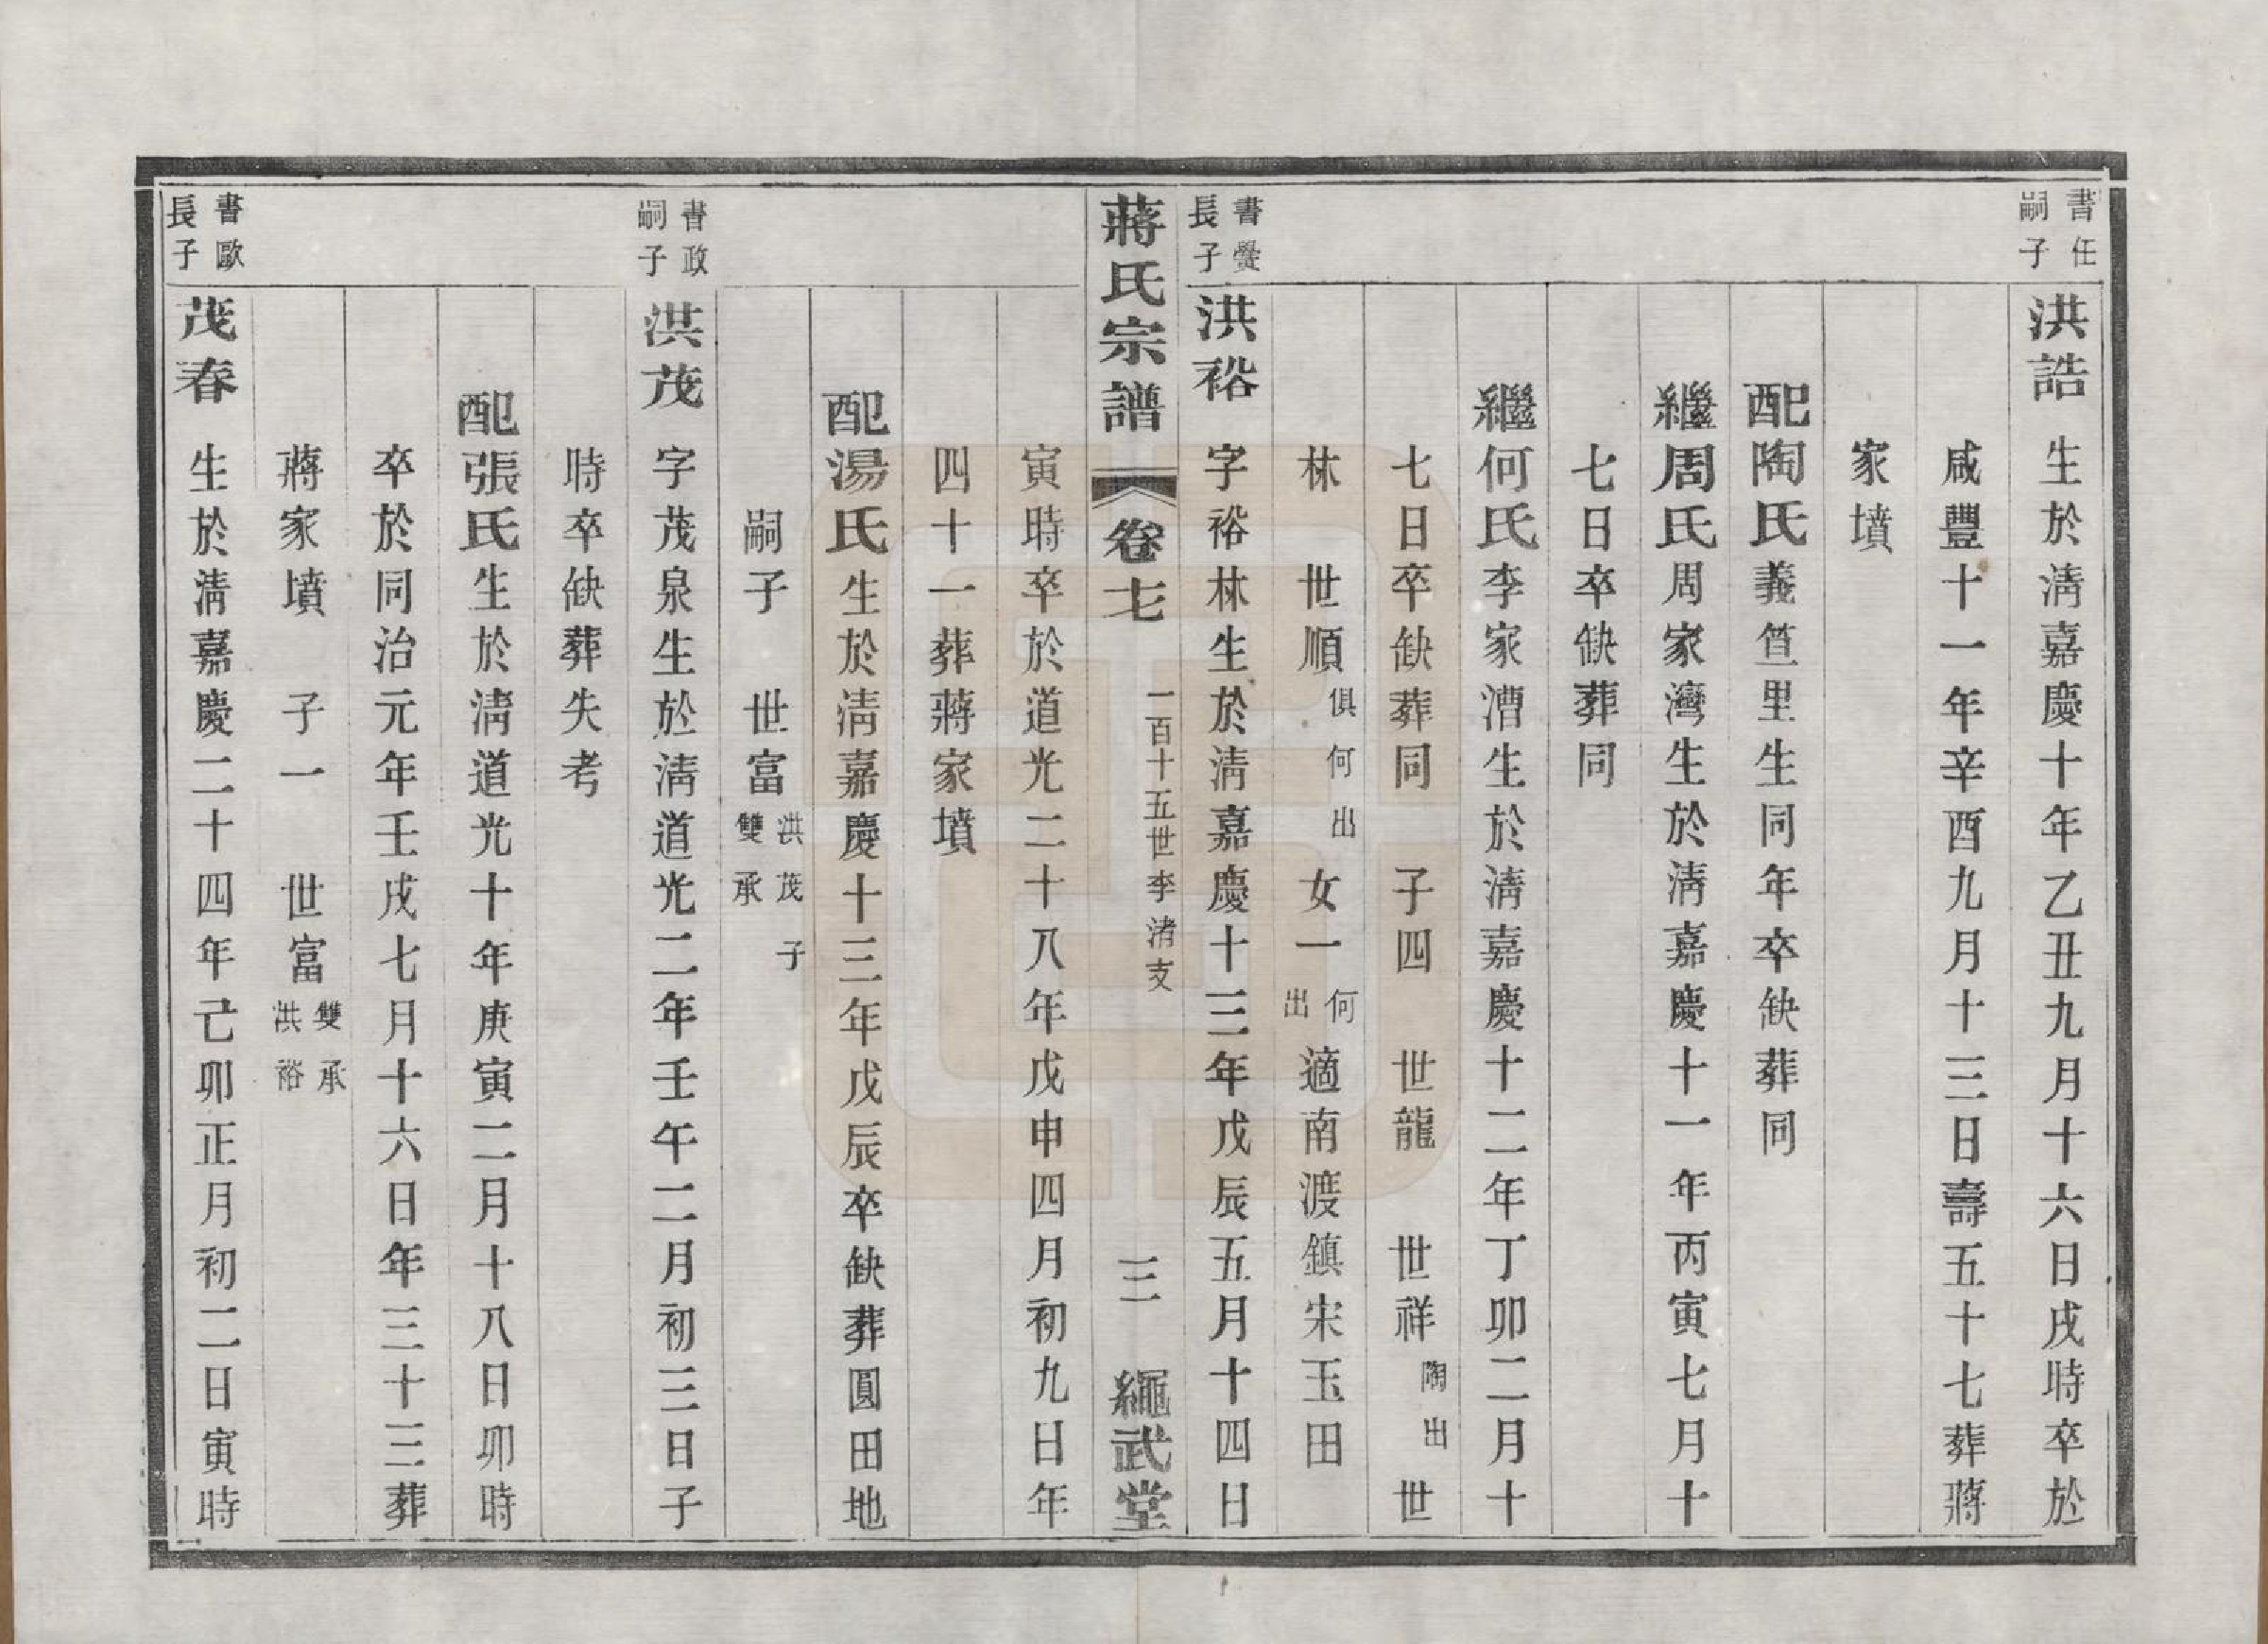 書任嗣子
洪誥 生於清嘉慶十年乙丑九月十六日戌時卒於
咸豐十一年辛酉九月十三日壽五十七葬蔣
家墳
配陶氏義笪里生同年卒缺葬同
繼周氏周家灣生於清嘉慶十一年丙寅七月十
七日卒缺葬同
繼何氏李家漕生於清嘉慶十二年丁卯二月十
七日卒缺葬同 子四 世龍 世祥陶出 世
林 世順俱何出 女一何出 適南渡鎮宋玉田
書黌長子
洪裕 字裕林生於清嘉慶十三年戊辰五月十四日
蔣氏宗譜 卷七 一百十五世李渚支 三 繩武堂
寅時卒於道光二十八年戊申四月初九日年
四十一葬蔣家墳
配湯氏生於清嘉慶十三年戊辰卒缺葬圓田地
嗣子 世富洪茂子雙承
書政嗣子
洪茂 字茂泉生於清道光二年壬午二月初三日子
時卒缺葬失考
配張氏生於清道光十年庚寅二月十八日卯時
卒於同治元年壬戌七月十六日年三十三葬
蔣家墳 子一 世富雙承洪裕
書歐長子
茂春 生於清嘉慶二十四年己卯正月初二日寅時